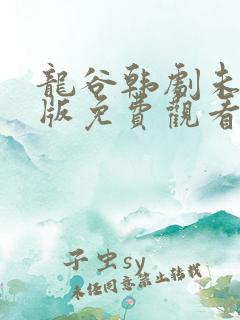 龍谷韩劇未
版免費觀看
子虫sy
未经同意禁止转载